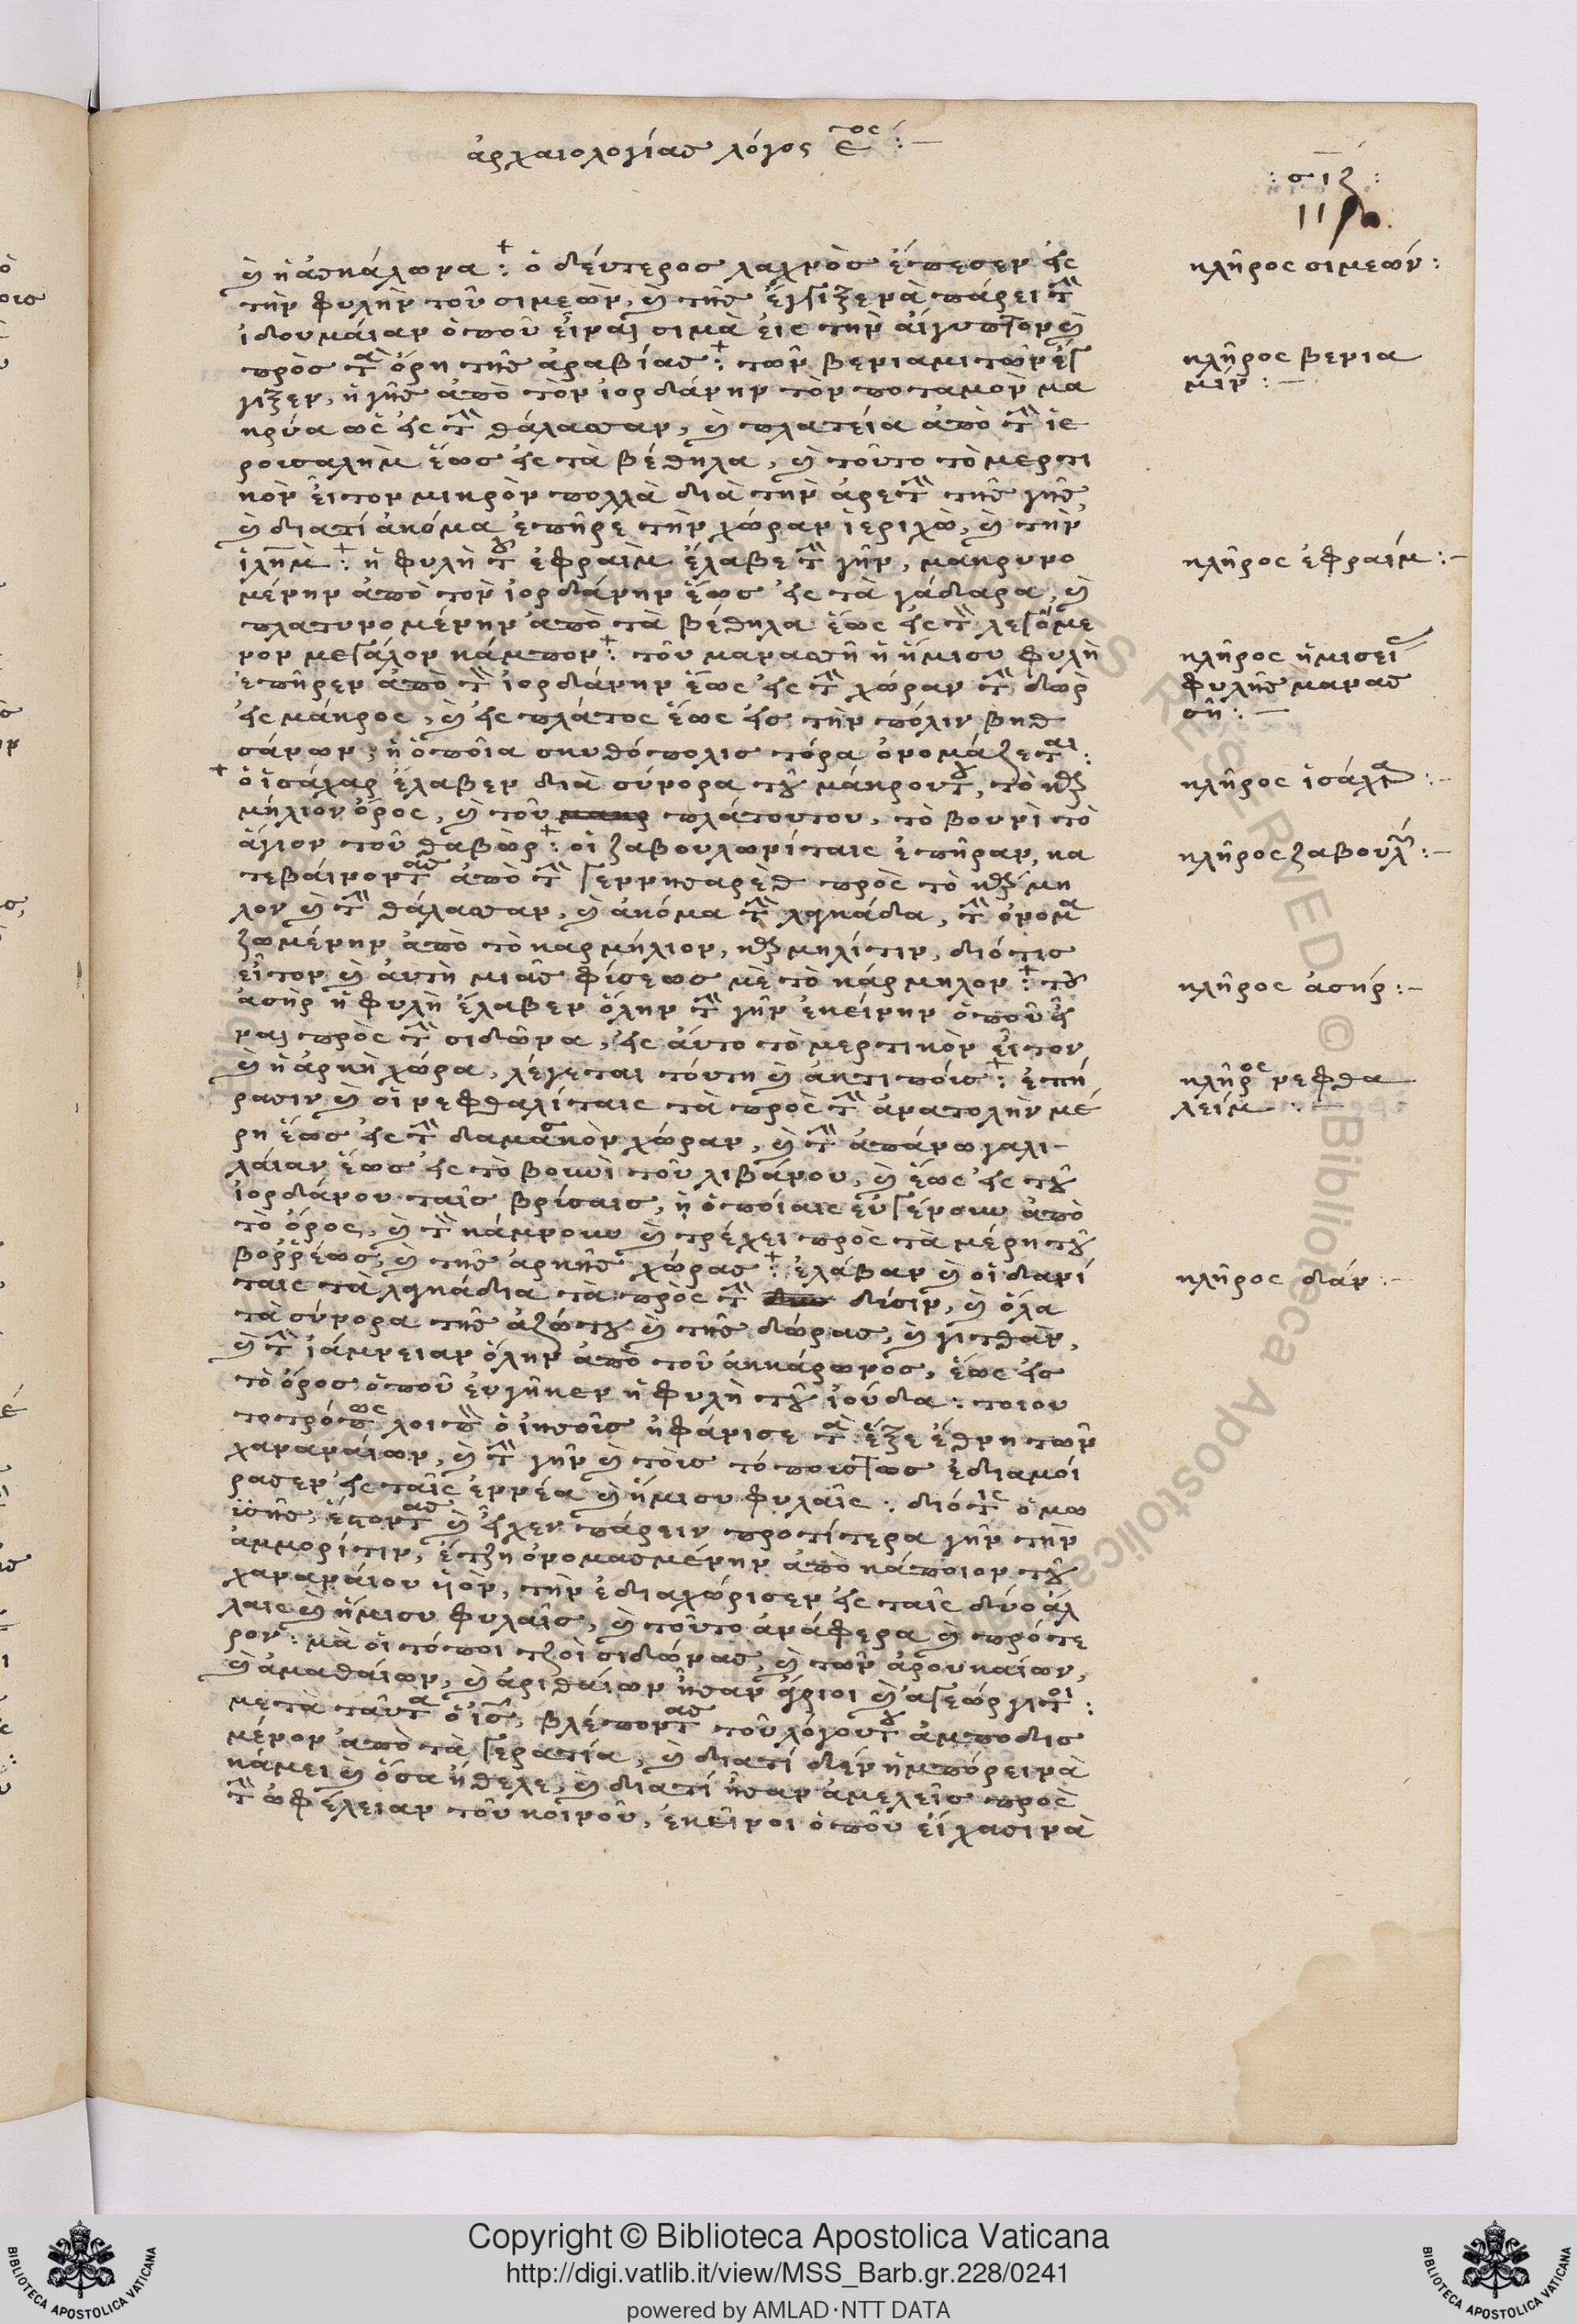 ἀρχαιολογίας λόγος ε^ος :—
: σιζ :
117
κ(αὶ) ἡ ἀσκάλωνα : ὁ δεύτερος λαχνὸς ἔπεσεν εἰς
τὴν φυλὴν τοῦ σιμεὼν, κ(αὶ) τῆς ἔγγιξε νὰ πάρει τὴν
ἰδουμαίαν ὁποῦ εἶναι σιμὰ εἰς τὴν αἴγυπτον κ(αὶ)
πρὸς τὰ ὄρη τῆς ἀραβίας : τῶν βενιαμιτῶν ἔγ
γιξεν, ἡ γῆς ἀπὸ τὸν ἰορδάνην τὸν ποταμὸν μα
κρύα ὡς εἰς τὴν θάλασσαν, κ(αὶ) πλατεία ἀπὸ τὴν ἱε
ρουσαλὴμ ἕως εἰς τὰ βέθηλα, κ(αὶ) τοῦτο τὸ μερτι
κὸν εἶτον μικρὸν πολλὰ διὰ τὴν ἀρετὴν τῆς γῆς
κ(αὶ) διατί ἀκόμα ἐπῆρε τὴν χώραν ἱεριχὼ, κ(αὶ) τὴν
ἱλημ : ἡ φυλὴ τοῦ ἐφραὶμ ἔλαβε τὴν γῆν, μακρυνο
μένην ἀπὸ τὸν ἰορδάνην ἕως εἰς τὰ γάδαρα, κ(αὶ)
πλατυνομένην ἀπὸ τὰ βέθηλα ἕως εἰς τὸν λεγόμε
νον μεγάλον κάμπον : τοῦ μανασσῆ ἡ ἥμισυ φυλὴ
ἐπῆρεν ἀπὸ τὸν ἰορδάνην ἕως εἰς τὴν χώραν τὴν δὼρ
εἰς μάκρος, κ(αὶ) εἰς πλάτος ἕως εἰς τὴν πόλιν βηθ
σάνων, ἡ ὁποῖα σκυθόπολις τόρα ὀνομάζεται :
ὁ ἰσάχαρ ἔλαβεν διὰ σύνορα τοῦ μάκρουτου, τὸ καρ
μήλιον ὄρος, κ(αὶ) τοῦ πλάτουτου, τὸ βουνὶ τὸ
ἅγιον τοῦ θαβὼρ : οἱ ζαβουλωνίταις ἐπῆραν, κα
τεβαίνοντας ἀπὸ τὴν γεννησαρὲθ πρὸς τὸ καρμη
λον κ(αὶ) τὴν θάλασσαν, κ(αὶ) ἀκόμα τὴν λακκάδα, τὴν ὀνομα
ζωμένην ἀπὸ τὸ καρμήλιον, καρμηλίτιν, διότις
εἶτον κ(αὶ) αὐτὴ μιᾶς φύσεως μὲ τὸ κάρμηλον : τοῦ
ἀσὴρ ἡ φυλὴ ἔλαβεν ὅλην τὴν γῆν ἐκείνην ὁποῦ εἶ
ναι πρὸς τὴν σιδῶνα, εἰς αὐτο τὸ μερτικὸν εἶτον
κ(αὶ) ἡ ἀρκὴ χώρα, λέγεται τούτη κ(αὶ) ἀκτιποῖς : ἐπή
ρασιν κ(αὶ) οἱ νεφθαλίταις τὰ πρὸς τὴν ἀνατολὴν μέ
ρη ἕως εἰς τὴν δαμασκὸν χώραν, κ(αὶ) τὴν ἀπάνω γαλι-
λαίαν ἕως εἰς τὸ βουνὶ τοῦ λιβάνου, κ(αὶ) ἕως εἰς τοῦ
ἰορδάνου ταῖς βρίσαις, ἡ ὁποίαις εὐγένουν ἀπὸ
τὸ ὄρος, κ(αὶ) τὸν κάμνουν κ(αὶ) τρέχει πρὸς τὰ μέρη τοῦ
βορρέως, κ(αὶ) τῆς ἀρκῆς χώρας : ἐλάβαν κ(αὶ) οἱ δανί
ταις τὰ λακκάδια τὰ πρὸς τὴν δύσιν, κ(αὶ) ὅλα
τὰ σύνορα τῆς ἀζώτου κ(αὶ) τῆς δώρας, κ(αὶ) γιτθὰν,
κ(αὶ) τὴν ἰάμνειαν ὅλην ἀπὸ τοῦ ἀκκάρωνος, ἕως εἰς
τὸ ὄρος ὁποῦ εὐγῆκεν ἡ φυλὴ τοῦ ἰούδα : τοιου
τοτρόπως λοιπὸν ὁ ἰησοῦς ἠφάνισε τὰ ἕξε ἔθνη τῶν
χαναναίων, κ(αὶ) τὴν γῆν κ(αὶ) τοὺς τόπουςτως ἐδιαμοί
ρασεν εἰς ταῖς ἐννέα κ(αὶ) ἥμισυ φυλαῖς : διότις ὁ μω
ϋσῆς, ἔστοντας κ(αὶ) εἶχεν πάρειν προτίτερα γῆν τὴν
ἀμμορίτιν, ἔτζη ὀνομασμένην ἀπὸ κάποιον τοῦ
χαναναίου ὑὸν, τὴν ἐδιαχώρισεν εἰς ταῖς δύο ἀλ
λαις κ(αὶ) ἥμισυ φυλαῖς, κ(αὶ) τοῦτο ἀνάφερα κ(αὶ) πρότε
ρον : μὰ οἱ τόποι τζοὶ σιδώνας, κ(αὶ) τῶν ἀρουκαίων,
κ(αὶ) ἀμαθαίων, κ(αὶ) ἀριθαίων ἦσαν ἄγριοι κ(αὶ) ἀγεώργιτοι :
μετὰ ταῦτα ὁ ἰς, βλέποντας τοῦ λόγουτου ἀμποδισ
μένον ἀπὸ τὰ γερατία, κ(αὶ) διατί δὲν ἠμπόρει νὰ
κάμει κ(αὶ) ὅσα ἤθελε, κ(αὶ) διατί ἦσαν ἀμελεῖς πρὸς
τὴν ὠφέλειαν τοῦ κοινοῦ, ἐκεῖνοι ὁποῦ εἴχασι νὰ
κλῆρος σιμεών :
κλῆρος βενια
μίν :—
κλῆρος ἐφραίμ :—
κλῆρος ἡμισεί
φυλῆς μανασ
σῆ :—
κλῆρος ἰσάχαρ :—
κλῆρος ζαβουλ :—
κλῆρος ἀσήρ :—
κλῆρος νεφθα
λείμ :—
κλῆρος δάν :—
Copyright © Biblioteca Apostolica Vaticana
http://digi.vatlib.it/view/MSS_Barb.gr.228/0241
powered by AMLAD·NTT DATA